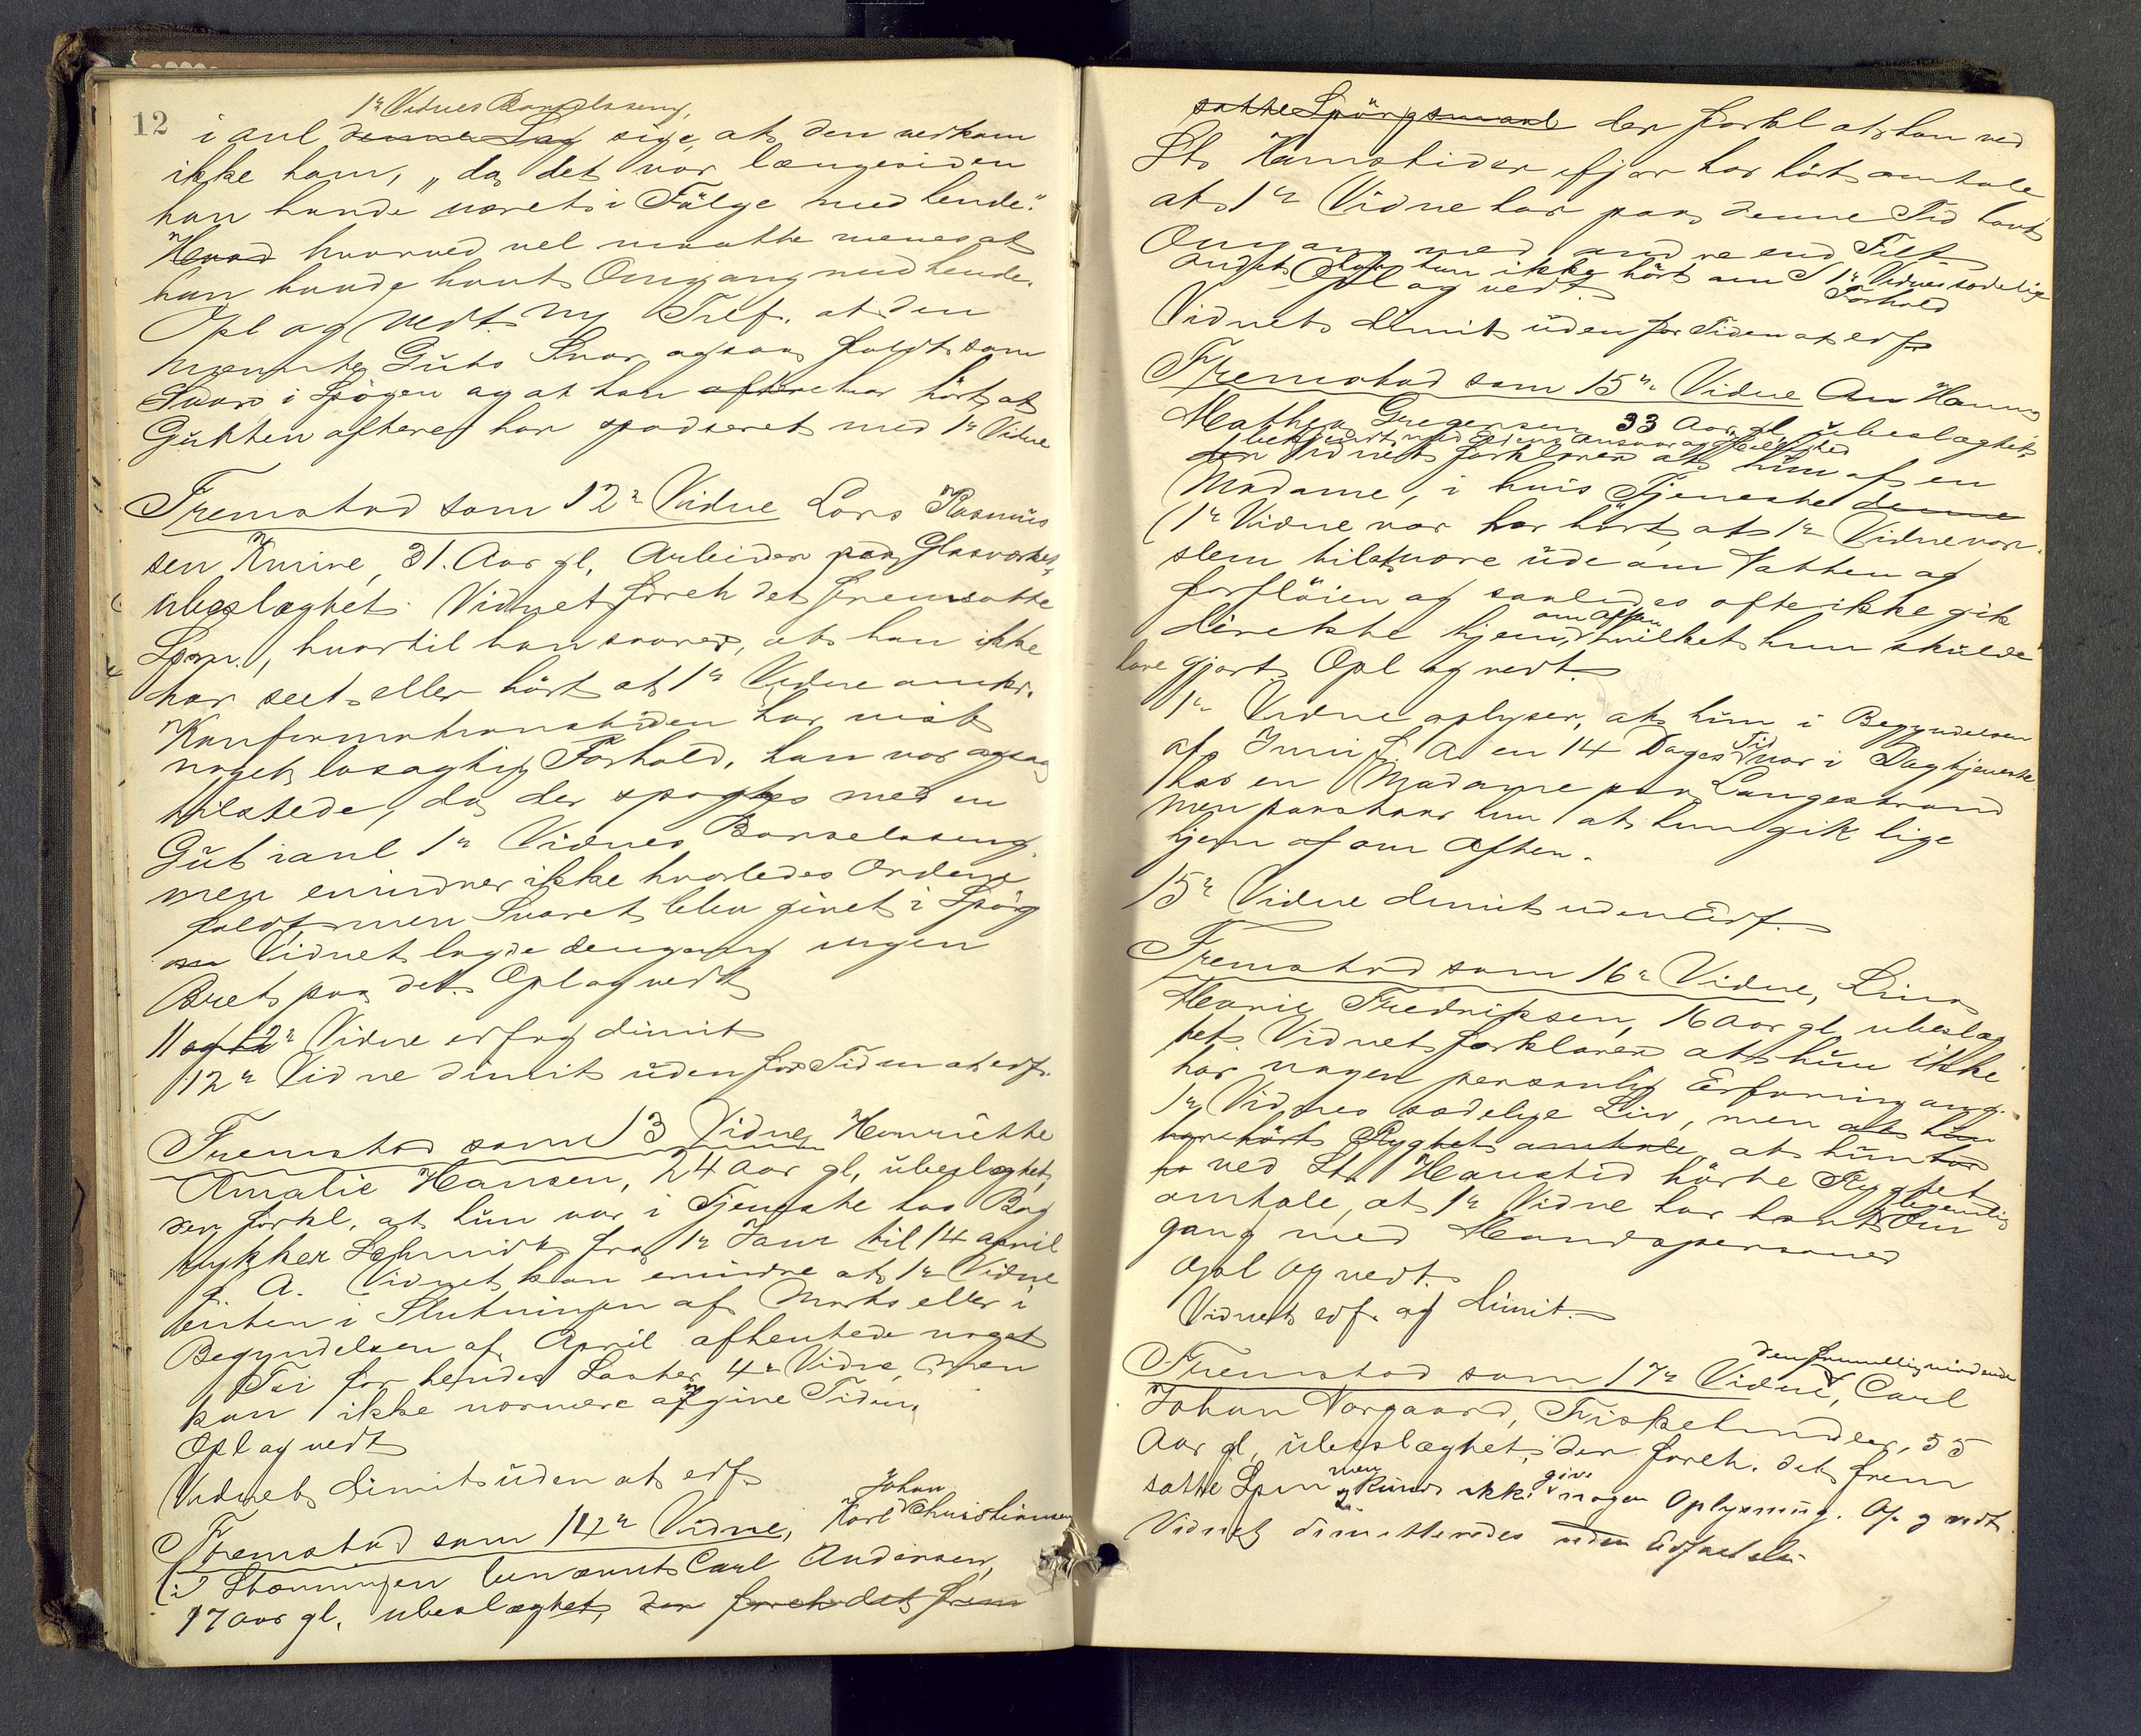 12
1ste Vidnes Barselseng,
i anl denne Sag sige, at den vedkom
ikke ham, "da det var længesiden
han havde været i Følge med hende."
Hvad hvorved vel maatte menes at
han havde havt Omgang med hende.
Opl og Vedt ny Tilf. at den
nævnte Guts Svar ogsaa faldt som
Svar i Spøgen og at han oftere har hørt, at
Gutten oftere har spadseret med 1ste Vidne
Fremstod som 12te Vidne Lars Rasmus
sen Knive, 31 Aar gl, Arbeider paa Glasværket,
ubeslægtet. Vidnet foreh det fremsatte
Spm., hvortil han svarer, at han ikke
har seet eller hørt at 1ste Vidne
Konfirmationstiden har vist
noget løsagtig Forhold, han var ogsaa
tilstede, da der spøgtes med en
Gut i anl 1ste Vidnes Barselseng
men erindrer ikke hvorledes Ordene
faldt, men Svaret blev givet i Spøg
Vidnet lagde dengang ingen
Bret paa det. Opl og vedt
11 og 12te Vidne edf og dimit
12te Vidne dimit uden for Tiden at edf.
Fremstod som 13 Vidne Henriette
Amalie Hansen, 24 Aar gl, ubeslægtet,
der forkl. at hun var i Tjeneste hos Bog
trykker Schmidt fra 1ste Janr til 14 April
f. A. Vidnet kan erindre at 1ste Vidne
enten i Slutningen af Marts eller i
Begyndelsen af April afhentede noget
Tøi for hendes Søster, 4de Vidne, men
kan ikke nærmere afgive Tiden.
Opl og vedt
Vidnet dimit uden at edf
Fremstod som 14de Vidne, Karl Johan Christiansen
(i Stævningen benævnt Carl Andersen,
17 Aar gl. ubeslægtet, der foreh det frem
satte Spørgsmaal der forkl at han ved
St Hanstider ifjor har hørt omtale
at 1ste Vidne har paa denne Tid havt
Omgang med andre end Tilt
andet har han ikke hørt om 1ste Vidnes sædelige
Forhold
Opl og vedt.
Vidnet dimit uden for Tiden at edf
Fremstod som 15de Vidne An Hanna
Mathea Gregersen 33 Aar gl ubeslægtet,
bekjendt med Edens Ansvar og Hellighed
der Vidnet forklarer at hun af en
Madame, i hvis Tjeneste denne
(1ste Vidne var har hørt, at 1ste Vidne var
slem til at være ude om Natten og
forfløien og saaledes ofte ikke gik
direkte hjem, om Aften hvilket hun skulde
have gjort. Opl og vedt.
1ste Vidne oplyser, at hun i Begyndelsen
af Juni f. A. en 14 Dages Tid var i Dagtjeneste
hos en Madame paa Langestrand
men paastaar hun at hun gik lige
hjem af om Aften.
15de Vidne dimit uden Edf.
Fremstod som 16de Vidne, Lina
Marie Fredriksen, 16 Aar gl, ubeslæg
tet Vidnet forklarer at hun ikke
har nogen personlig Erfaring ang.
1ste Vidnes sædelige Liv, men at hun
have hørt Rygtet omtale at hun har
ved St Hanstid hørte Rygtet
omtale, at 1ste Vidne har havt legemlig Om
gang med Mandspersoner
Opl og vedt.
Vidnet edf. og dimit.
Fremstod som 17de Vidne, den frivillig mødende Carl
Johan Norgaard, Fiskehandler, 55
Aar gl, ubeslægtet, der foreh. det frem
satte Spm men kunde ikke give nogen Oplysning. Op. g vedt
Vidnet dimitteredes uden Edfæstelse